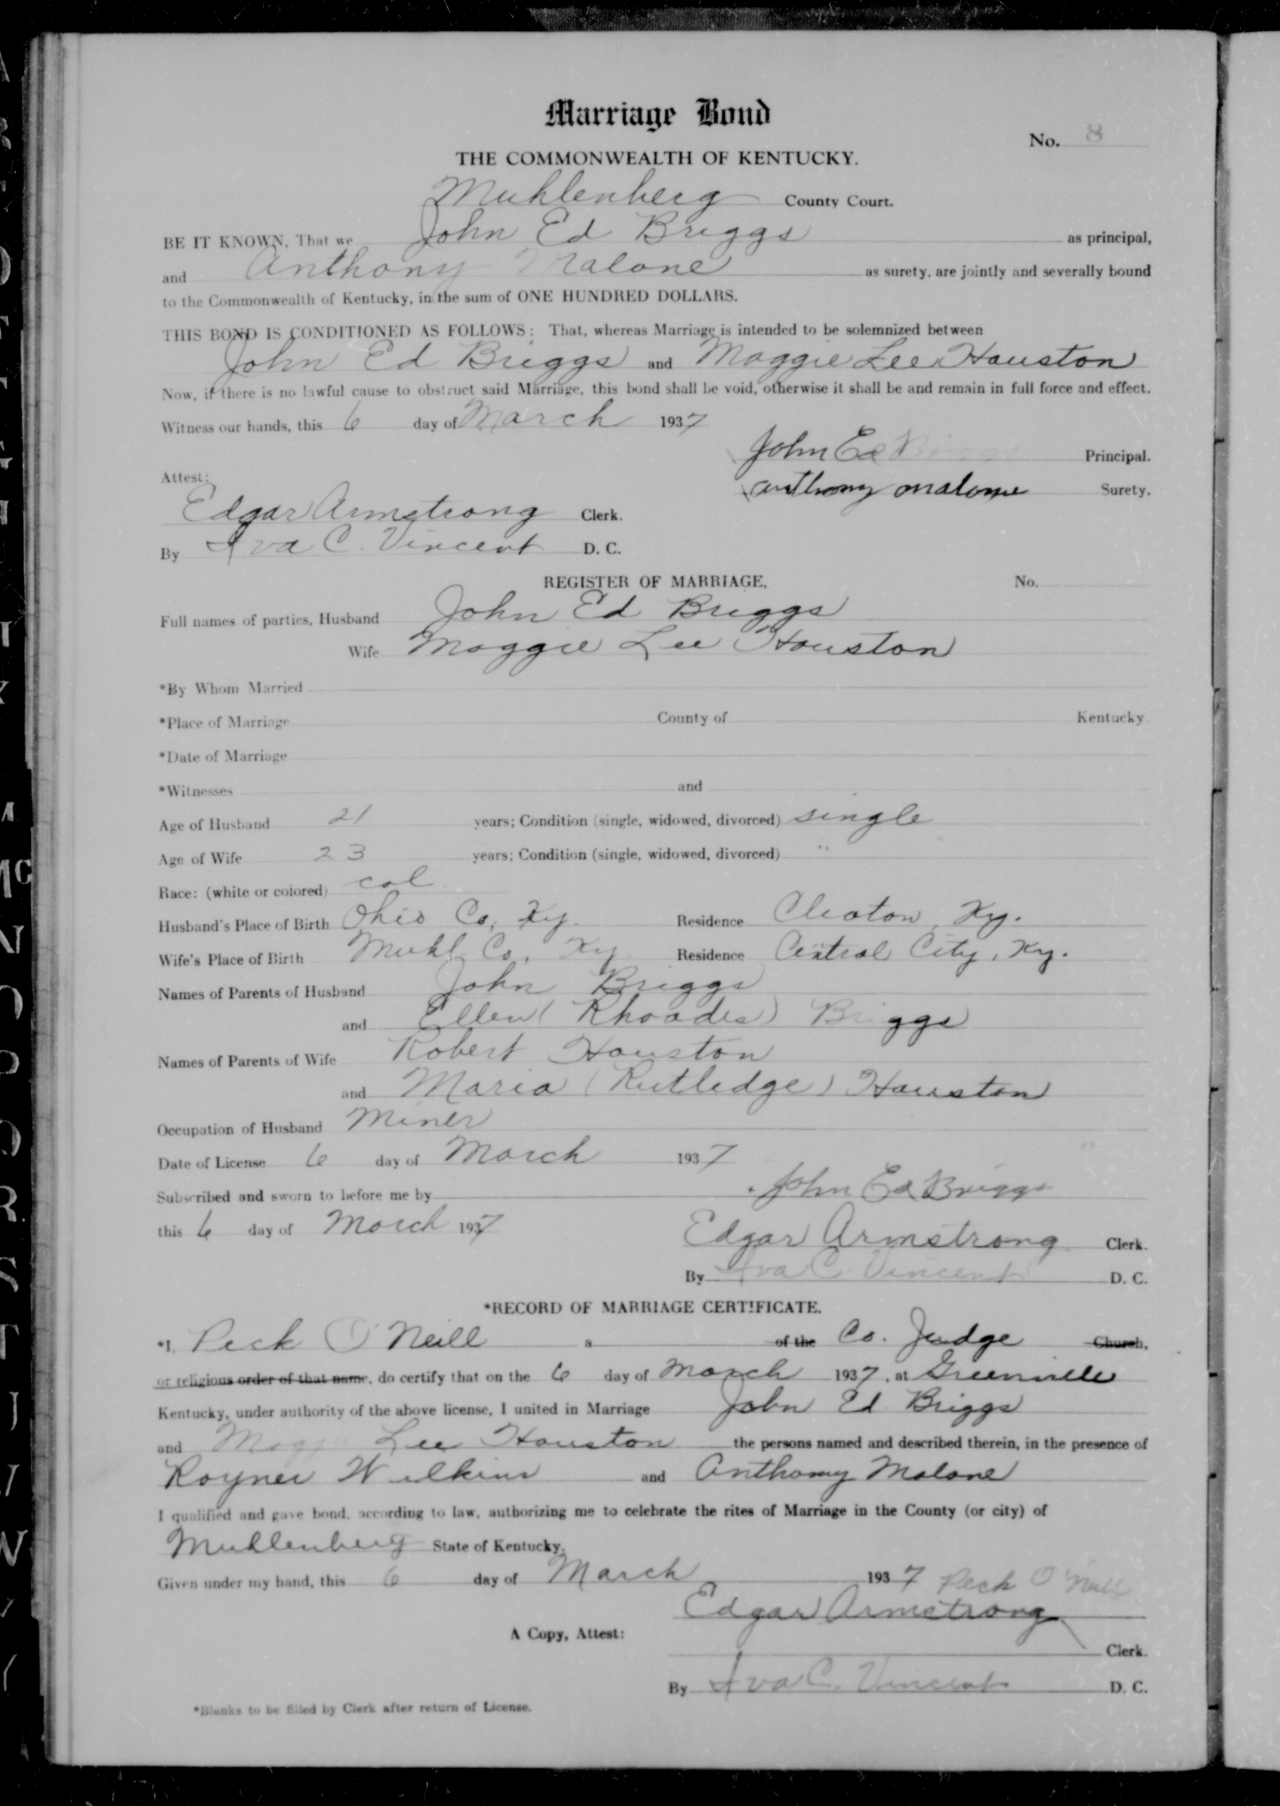 Marriage Bond
No. 8
THE COMMONWEALTH OF KENTUCKY.
Muhlenberg County Court.
BE IT KNOWN, That we John Ed Briggs as principal,
and Anthony Malone as surety, are jointly and severally bound
to the Commonwealth of Kentucky, in the sum of ONE HUNDRED DOLLARS.
THIS BOND IS CONDITIONED AS FOLLOWS: That, whereas Marriage is intended to be solemnized between
John Ed Briggs and Maggie Lee Houston
Now, if there is no lawful cause to obstruct said Marriage, this bond shall be void, otherwise it shall be and remain in full force and effect.
Witness our hands, this 6 day of March 1937
John Ed Briggs Principal.
Attest:
anthony malone Surety.
Edgar Armstrong Clerk.
By Iva C. Vincent D. C.
REGISTER OF MARRIAGE. No.
Full names of parties, Husband John Ed Briggs
Wife Maggie Lee Houston
*By Whom Married
*Place of Marriage County of Kentucky.
*Date of Marriage
*Witnesses and
Age of Husband 21 years; Condition (single, widowed, divorced) single
Age of Wife 23 years; Condition (single, widowed, divorced) "
Race: (white or colored) col
Husband's Place of Birth Ohio Co, Ky. Residence Cleaton, Ky.
Wife's Place of Birth Muhl Co, Ky Residence Central City, Ky.
Names of Parents of Husband John Briggs
and Ellen (Rhoades) Briggs
Names of Parents of Wife Robert Houston
and Maria (Rutledge) Houston
Occupation of Husband Miner
Date of License 6 day of March 1937
Subscribed and sworn to before me by John Ed Briggs
this 6 day of March 1937 Edgar Armstrong Clerk.
By Iva C. Vincent D. C.
*RECORD OF MARRIAGE CERTIFICATE.
*I, Peck O'Neill a of the Co. Judge Church,
or religious order of that name, do certify that on the 6 day of March 1937, at Greenville
Kentucky, under authority of the above license, I united in Marriage John Ed Briggs
and Maggie Lee Houston the persons named and described therein, in the presence of
Royner Wilkins and Anthony Malone
I qualified and gave bond, according to law, authorizing me to celebrate the rites of Marriage in the County (or city) of
Muhlenberg State of Kentucky.
Given under my hand, this 6 day of March 1937 Peck O'Neill
Edgar Armstrong
A Copy, Attest:
Clerk.
By Iva C. Vincent D. C.
*Blanks to be filled by Clerk after return of License.